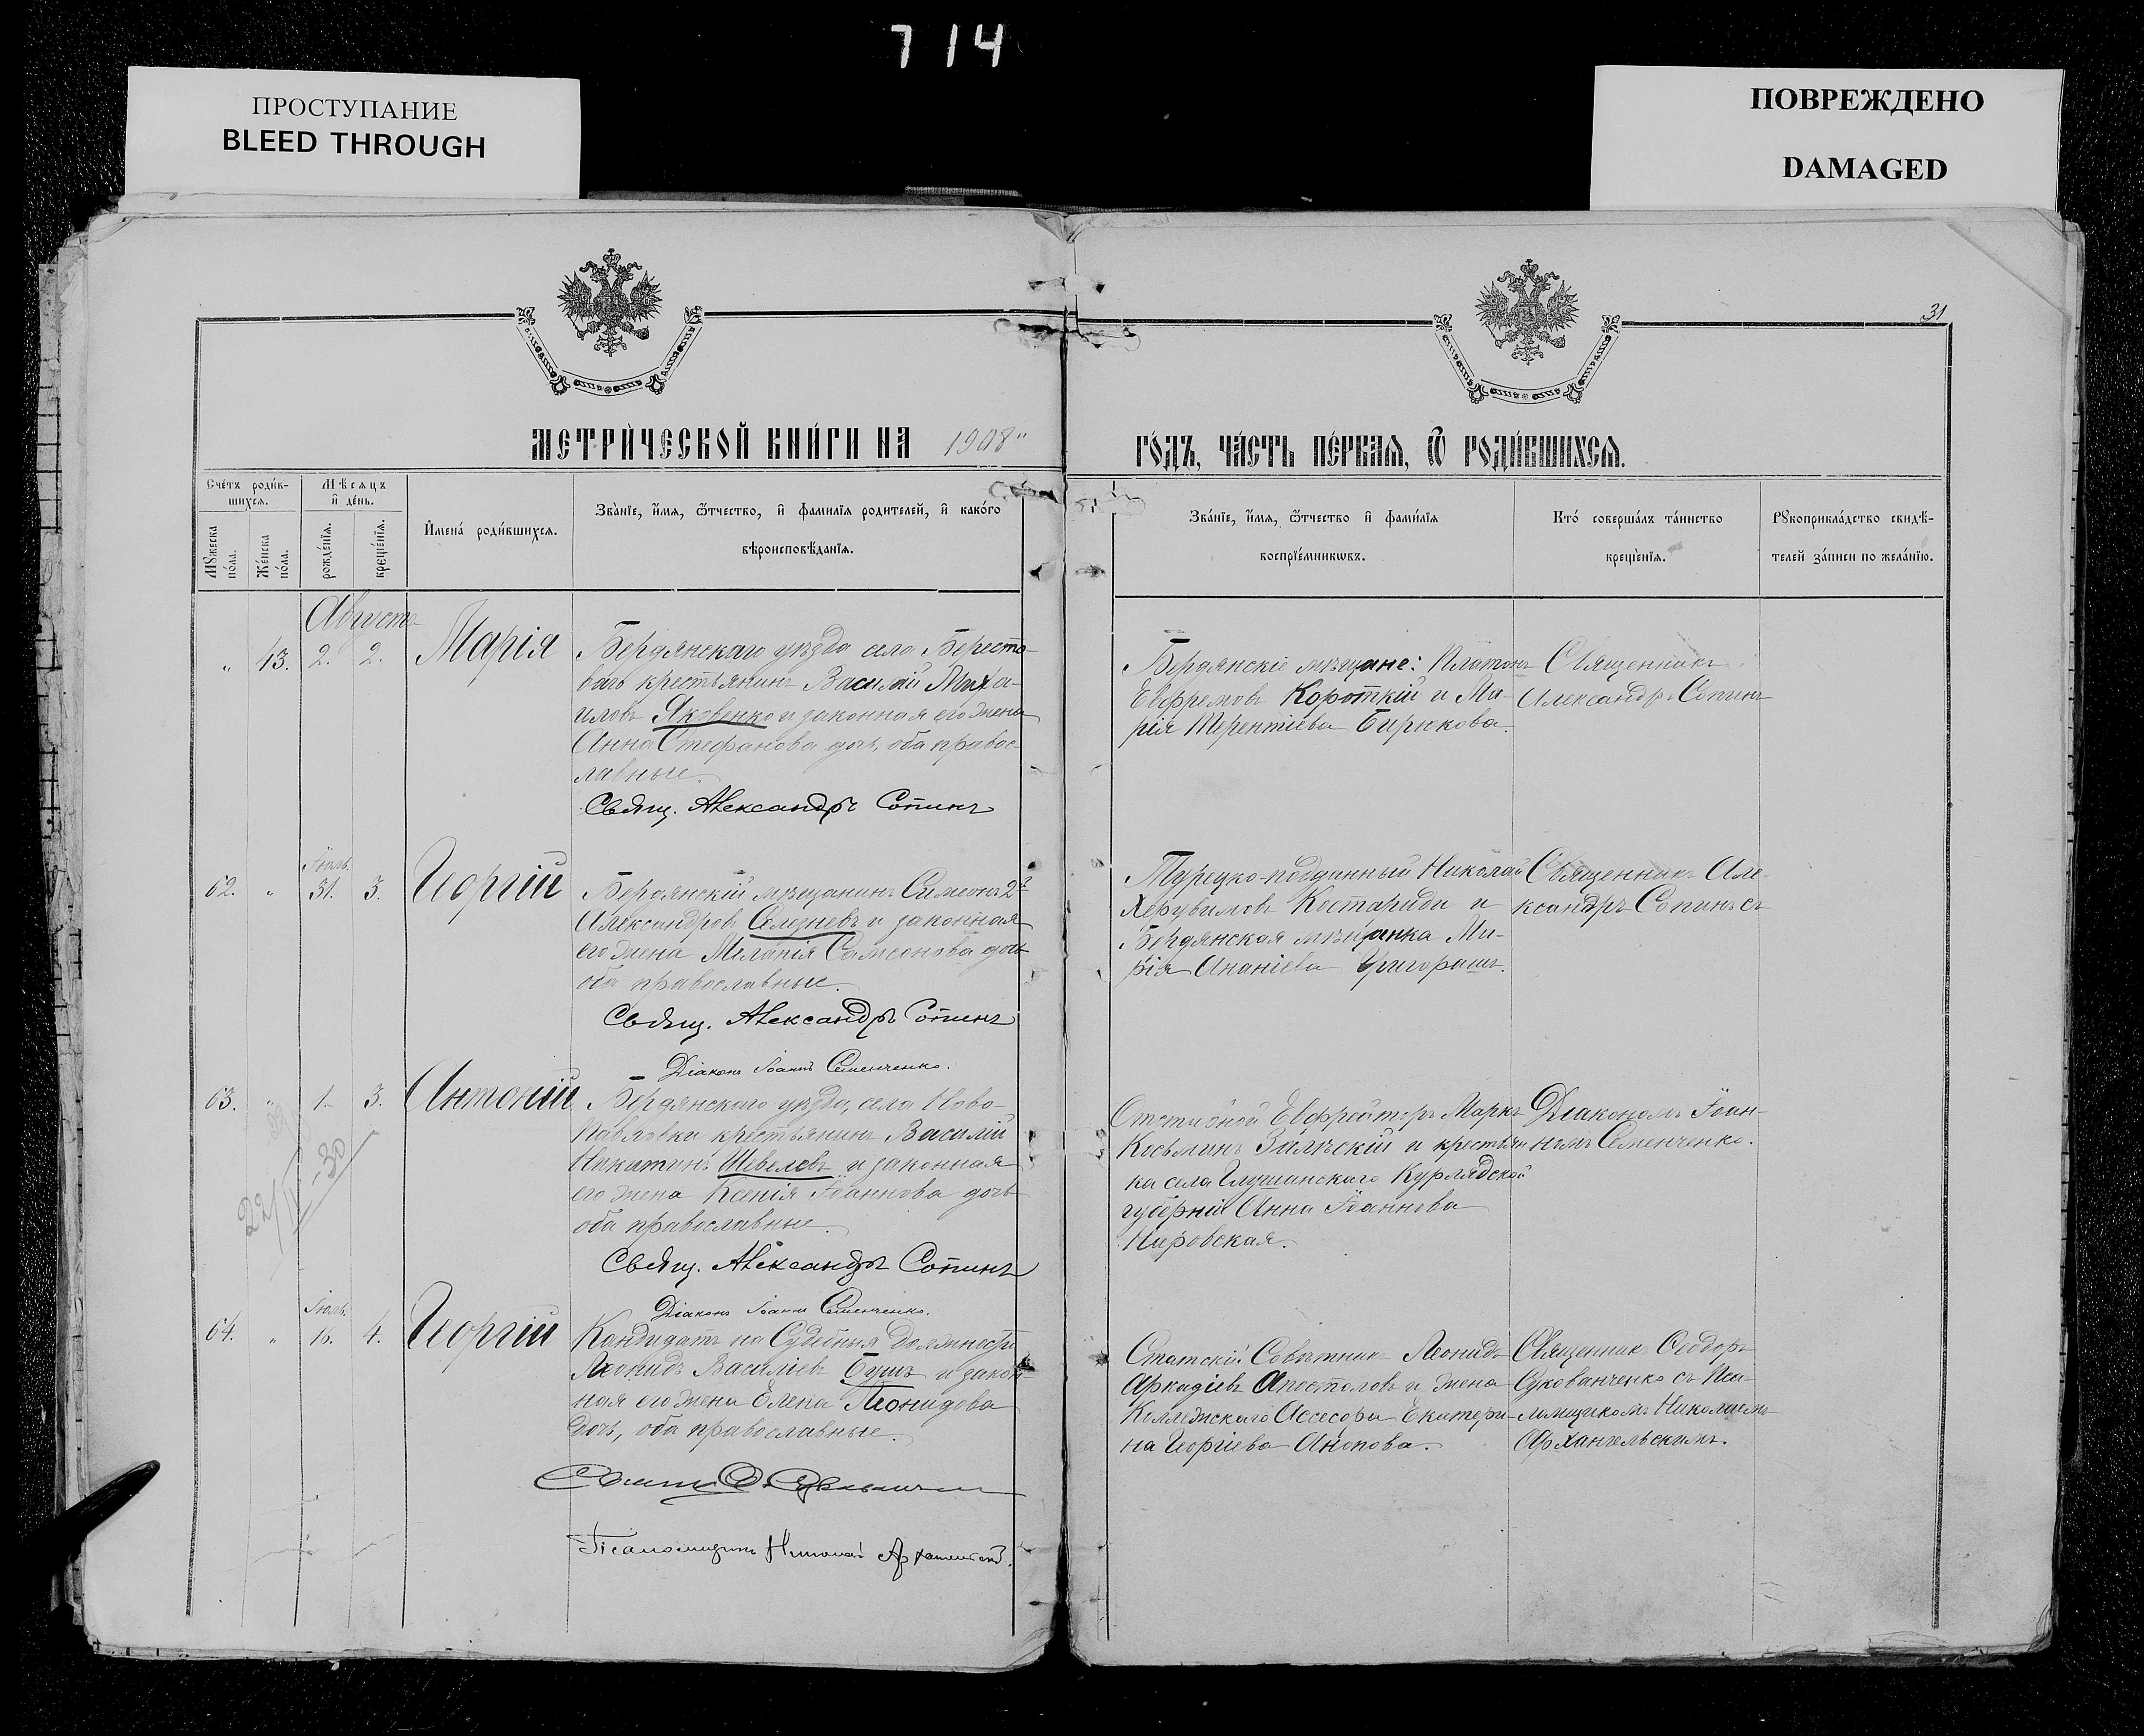 7 14
ПРОСТУПАНИЕ
BLEED THROUGH
ПОВРЕЖДЕНО
DAMAGED
31
МЕТРИ́ЧЕСКОЙ КНИ́ГИ НА 1908"
ГО́ДЪ, ЧА́СТЬ ПЕ́РВАѦ, Ѿ РОДИ́ВШИХСѦ.
Сче́тъ роди́в-
шихсѧ.
Мѣсѧцъ
и҆ де́нь.
Мꙋ́жеска по́ла.
Же́нска по́ла.
рожде́нїѧ.
креще́нїѧ.
И҆мена́ роди́вшихсѧ.
Зва́нїе, и҆́мѧ, ѻ҆́тчество, и҆ фами́лїѧ роди́телей, и҆ како́гѡ
вѣроисповѣ́данїѧ.
Зва́нїе, и҆́мѧ, ѻ҆́тчество и҆ фами́лїѧ
воспрїе́мникѡвъ.
Кто́ соверша́лъ та́инство
креще́нїѧ.
Рꙋкоприкла́дство свидѣ́-
телей за́писи по жела́нїю.
Августа
" 43. 2. 2. Марія
Бердянскаго уѣзда села Бересто-
ваго крестьянинъ Василій Миха-
иловъ Яковенко и законная его жена
Анна Стефанова дочь, оба правос-
лавные.
Свящ. Александръ Сопинъ
Бердянскіе мѣщане: Платонъ
Евфремовъ Короткій и Ма-
рія Терентіева Бирюкова.
Священникъ
Александръ Сопинъ
Іюль.
62. " 31. 3. Георгій
Бердянскій мѣщанинъ Симеонъ 2й
Александровъ Селезневъ и законная
его жена Меланія Самсонова дочь
оба православные.
Свящ. Александръ Сопинъ
Діаконъ Іоаннъ Семенченко.
Турецко-подданный Николай
Херувимовъ Костариди и
Бердянская мѣщанка Ма-
рія Ананіева Григорашъ.
Священникъ Але-
ксандръ Сопинъ съ
63. " 1. 3. Антоній
Бердянскаго уѣзда, села Ново-
Павловки крестьянинъ Василій
Никитинъ Шевелевъ и законная
его жена Ксенія Іоаннова дочь
оба православные.
Свящ. Александръ Сопинъ
Діаконъ Іоаннъ Семенченко.
22/II-30
Отставной Евфрейторъ Маркъ
Косьминъ Залѣскій и крестьян-
ка села Глушанскаго Курляндской
губерніи Анна Іоаннова
Пировская.
Діакономъ Іоан-
номъ Семенченко.
Іюль.
64. " 16. 4. Георгій
Кандидатъ на Судебныя Должности
Леонидъ Василіевъ Бушъ и закон-
ная его жена Елена Леонидова
дочь, оба православные.
Псаломщикъ Николай Архангельскій.
Статскій Совѣтникъ Леонидъ
Аркадіевъ Апостоловъ и жена
Коллежскаго Ассесора Екатери-
на Георгіева Анопова.
Священникъ Ѳеодоръ
Сукованченко съ Пса-
ломщикомъ Николаемъ
Архангельскимъ.